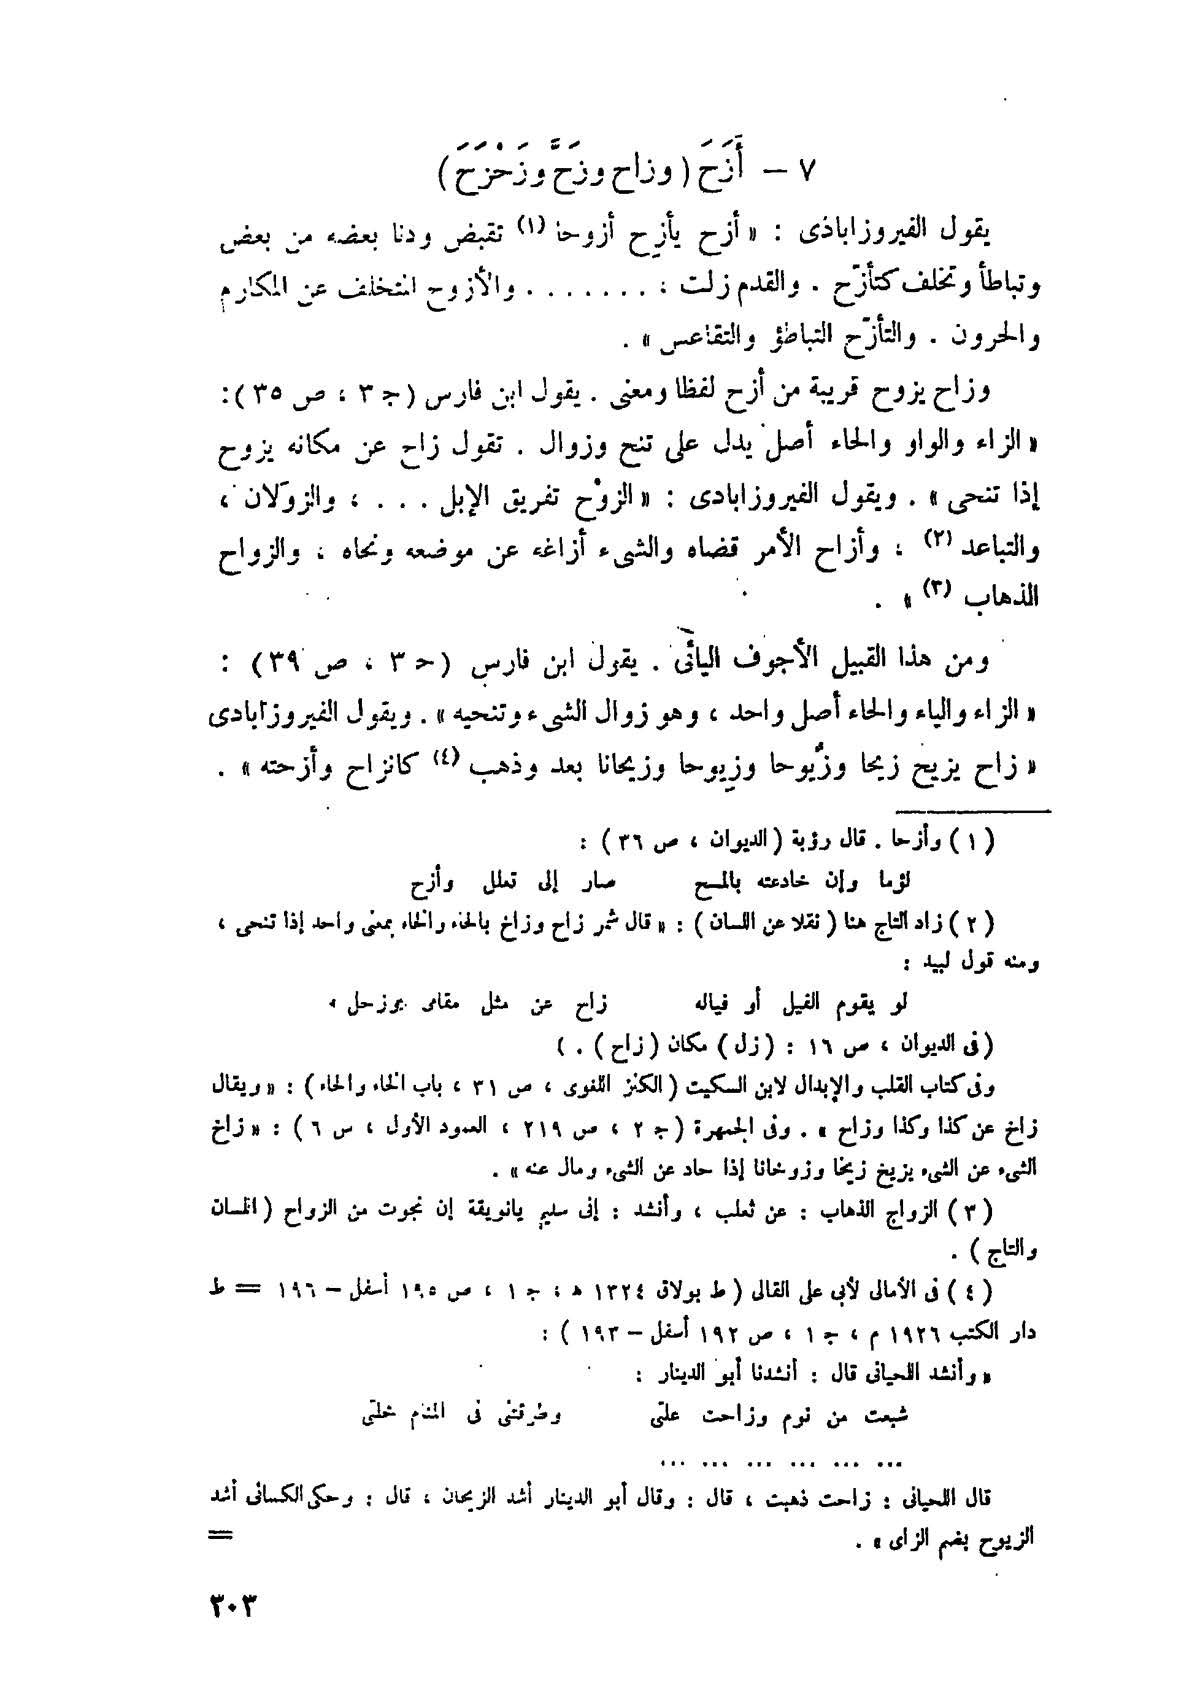 ٧ — أَزَحَ ( وزاح وزَحَّ وزَحْزَحَ )
يقول الفيروزاباذى : « أزح يأزِح أزوحا (١) تقبض ودنا بعضه من بعض
وتباطأ وتخلف كتأزّح . والقدم زلت ؛ . . . . . . . والأزوح المتخلف عن المكارم
والحرون . والتأزّح التباطؤ والتقاعس » .
وزاح يزوح قريبة من أزح لفظا ومعنى . يقول ابن فارس ( ج ٣ ، ص ٣٥ ) :
« الزاء والواو والحاء أصل يدل على تنح وزوال . تقول زاح عن مكانه يزوح
إذا تنحى » . ويقول الفيروزابادى : « الزوْح تفريق الإبل . . . ، والزوَلان ،
والتباعد (٢) ، وأزاح الأمر قضاه والشىء أزاغه عن موضعه ونحاه ، والزواح
الذهاب (٣) » .
ومن هذا القبيل الأجوف اليائى . يقول ابن فارس ( ح ٣ ، ص ٣٩ ) :
« الزاء والياء والحاء أصل واحد ، وهو زوال الشىء وتنحيه » . ويقول الفيروزابادى
« زاح يزيح زيحا وزُيوحا وزِيوحا وزيحانا بعد وذهب (٤) كانزاح وأزحته » .
( ١ ) وأزحا . قال رؤبة ( الديوان ، ص ٣٦ ) :
لؤما وإن خادعته بالمسح صار إلى تعلل وأزح
( ٢ ) زاد التاج هنا ( نقلا عن اللسان ) : « قال شمر زاح وزاخ بالحاء والخاء بمعنى واحد إذا تنحى ،
ومنه قول لبيد :
لو يقوم الفيل أو فياله زاح عن مثل مقامى وزحل »
( فى الديوان ، ص ١٦ : ( زل ) مكان ( زاح ) . )
وفى كتاب القلب والإبدال لابن السكيت ( الكنز اللغوى ، ص ٣١ ، باب الخاء والحاء ) : « ويقال
زاخ عن كذا وكذا وزاح » . وفى الجمهرة ( ج ٢ ، ص ٢١٩ ، العمود الأول ، س ٦ ) : « زاخ
الشىء عن الشىء يزيخ زيخا وزوخانا إذا حاد عن الشىء ومال عنه » .
( ٣ ) الزواح الذهاب : عن ثعلب ، وأنشد : إنى سليم يانويقة إن نجوت من الزواح ( اللسان
والتاج ) .
( ٤ ) فى الأمالى لأبى على القالى ( ط بولاق ١٣٢٤ ه ، ج ١ ، ص ١٩٥ أسفل — ١٩٦ = ط
دار الكتب ١٩٢٦ م ، ج ١ ، ص ١٩٢ أسفل — ١٩٣ ) :
« وأنشد اللحيانى قال : أنشدنا أبو الدينار :
شبعت من نوم وزاحت علتى وطرقتنى فى المنام خلتى
... ... ... ... ... ...
قال اللحيانى : زاحت ذهبت ، قال : وقال أبو الدينار أشد الزيحان ، قال : وحكى الكسائى أشد
الزيوح بضم الزاى » . =
٣٠٣